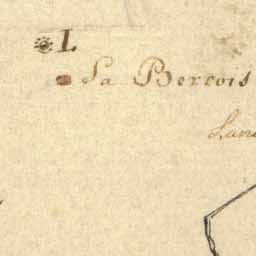 L
La Bercois
Lan